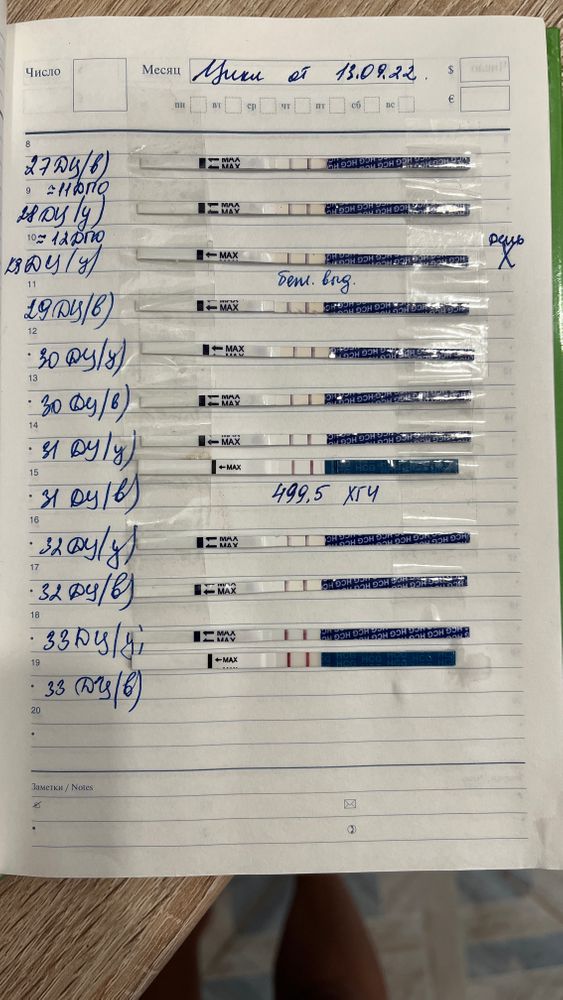 Число Месяц Цикл от 13.09.22. $
пн вт ср чт пт сб вс €
8
27 ДЦ/в)
9 ≈11 ДПО
28 ДЦ/у)
10 ≈12 ДПО
день
29 ДЦ/у) X
11 беж. выд.
29 ДЦ/в)
12
30 ДЦ/у)
13
30 ДЦ/в)
14
31 ДЦ/у)
15 MAX
31 ДЦ/в) 499,5 ХГЧ
16
32 ДЦ/у)
17
32 ДЦ/в) MAX
18
33 ДЦ/у)
19 MAX
33 ДЦ/в)
20
Заметки / Notes